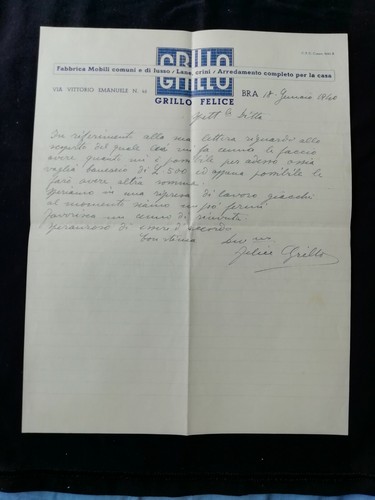 GRILLO
Fabbrica Mobili comuni e di lusso / Lane, crini / Arredamento completo per la casa
VIA VITTORIO EMANUELE N.
GRILLO FELICE
BRA 18 Gennaio 1940
Spett le Ditta
In riferimento alla sua lettera riguardo allo
del quale Lei mi fa cenno le faccio
avere quanto mi è possibile per adesso ossia
vaglia bancario di L 500 ed appena possibile le
farò avere altra somma.
Speriamo in una ripresa di lavoro giacchè
al momento siamo un po' fermi
favorisca un cenno di ricevuta
Speranzoso di esserci d'accordo
Con stima
Felice Grillo